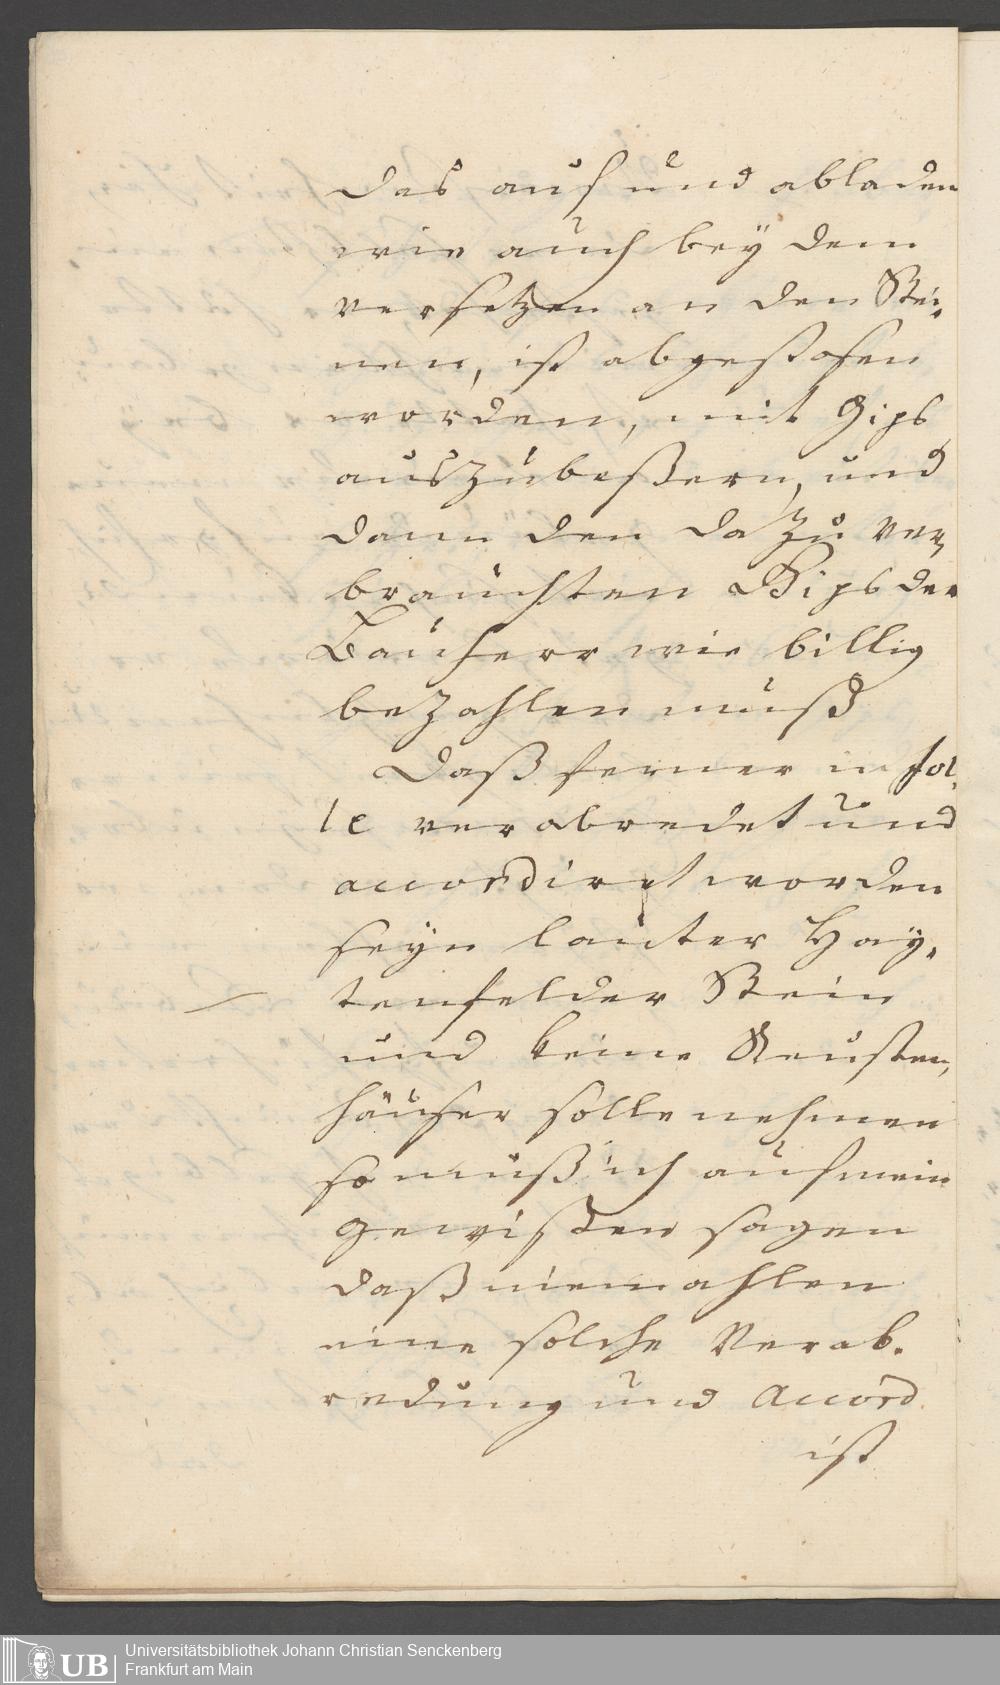 das auf und abladen
wie auch beÿ dem
versetzen an den Stei,
nen, ist abgestosen
worden, mit Gips
auszubeßern, und
dann den dazu ver,
brauchten Gips der
Bauherr wie billig
bezahlen muß
Daß ferner in sol,
le verabredet und
accordiret worden
seÿn lauter Haÿ,
tenfelder Stein
und keine
häuser solle nehmen
so muß ich auf mein
gewißen sagen
daß niemahlen
eine solche Verab,
redung und Accord
ist
UB
Universitätsbibliothek Johann Christian Senckenberg
Frankfurt am Main